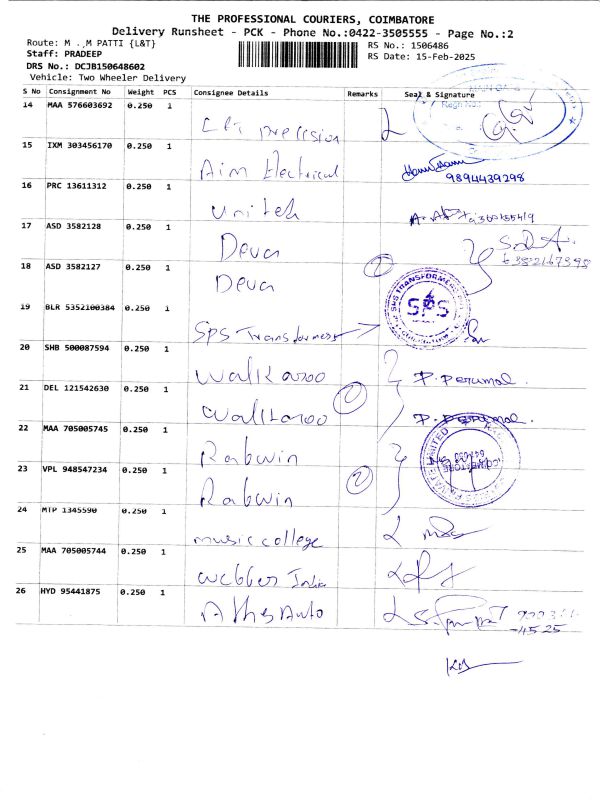 THE PROFESSIONAL COURIERS, COIMBATORE
Delivery Runsheet - PCK - Phone No.:0422-3505555 - Page No.:2
Route: M . ,M PATTI {L&T}
RS No.: 1506486
Staff: PRADEEP
RS Date: 15-Feb-2025
DRS No.: DCJB150648602
Vehicle: Two Wheeler Delivery
S No Consignment No Weight PCS Consignee Details Remarks Seal & Signature
14 MAA 576603692 0.250 1
15 IXM 303456170 0.250 1 Aim Electrical
9894439298
16 PRC 13611312 0.250 1 United
17 ASD 3582128 0.250 1 Deva
18 ASD 3582127 0.250 1 Deva 2
19 BLR 5352100384 0.250 1 SPS Transformers SPS
20 SHB 500087594 0.250 1 Walkaroo P. Perumal.
21 DEL 121542630 0.250 1 Walkaroo 2 P. Perumal.
22 MAA 705005745 0.250 1 Rabwin
23 VPL 948547234 0.250 1 Rabwin 2
24 MTP 1345590 0.250 1 music college
25 MAA 705005744 0.250 1 webber India
26 HYD 95441875 0.250 1 Aths Auto